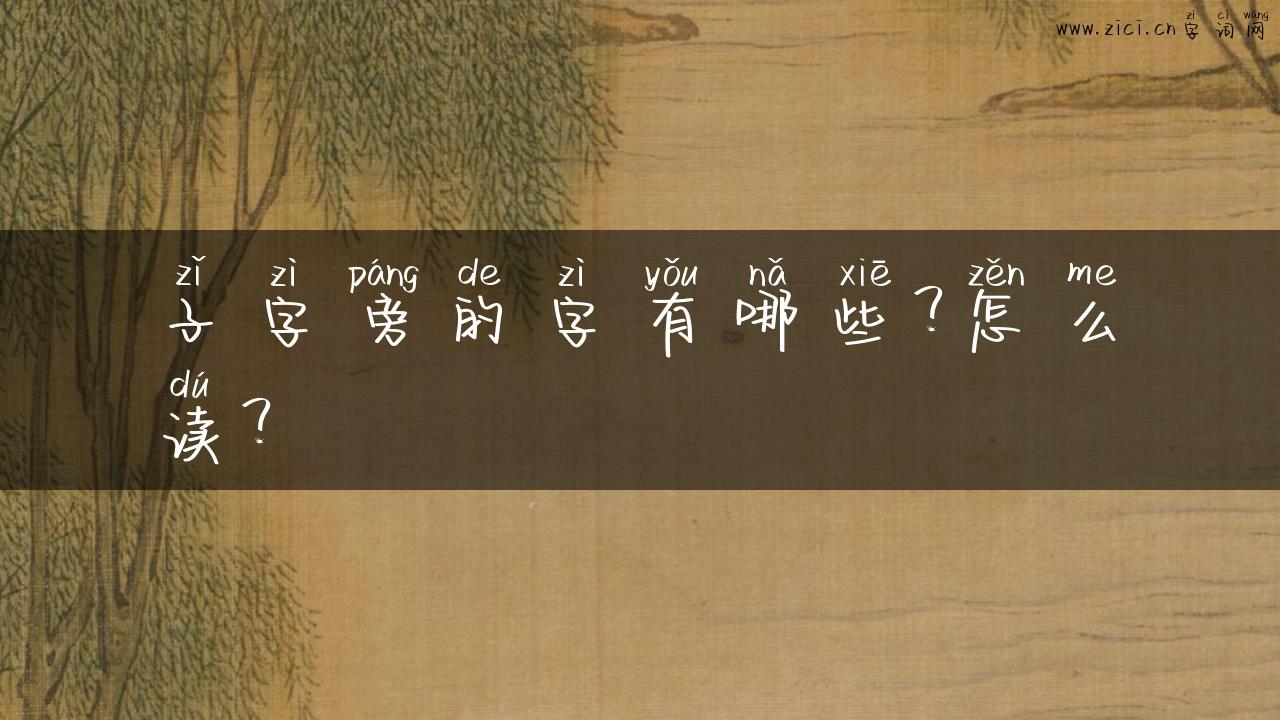 zì cí wǎng
www.zici.cn字词网
zǐ zì páng de zì yǒu nǎ xiē zěn me
子字旁的字有哪些?怎么
dú
读?